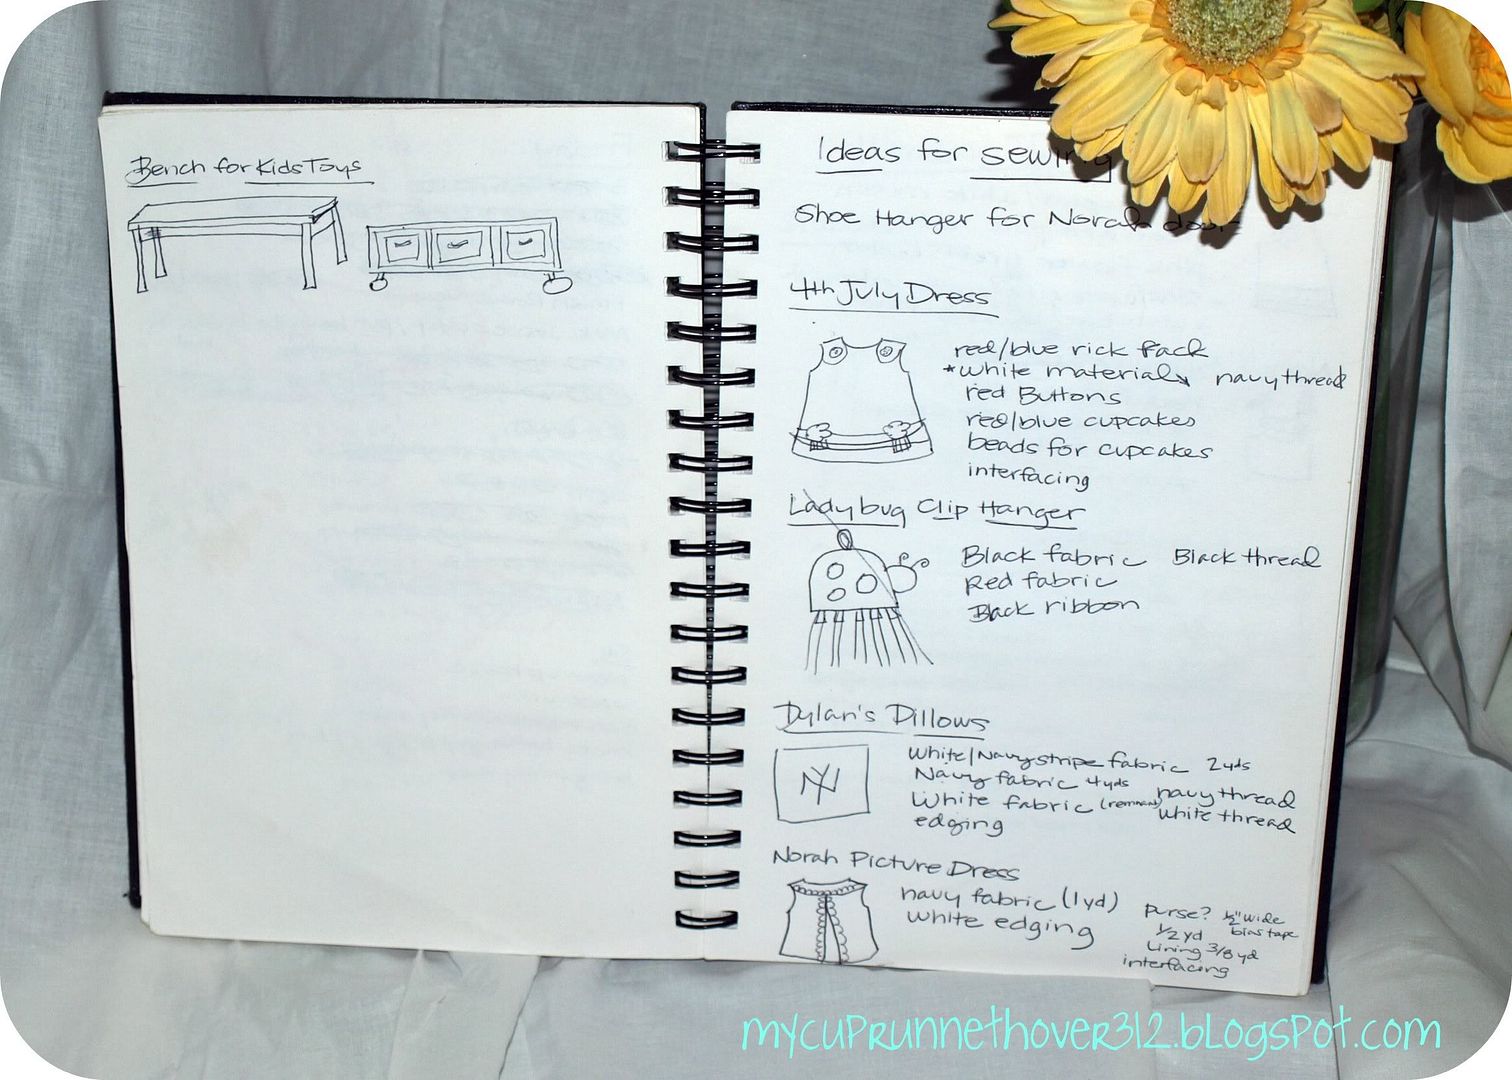 Bench for Kids Toys
Ideas for sewing
Shoe Hanger for Norah door
4th July Dress
red/blue rick rack
*white material* navy thread
red Buttons
red/blue cupcakes
beads for cupcakes
interfacing
Ladybug Clip Hanger
Black fabric Black thread
Red fabric
Black ribbon
Dylan's Pillows
NY
White/Navy stripe fabric 2 yds
Navy fabric 4 yds navy thread
White fabric (remnant) white thread
edging
Norah Picture Dress
navy fabric (1 yd)
white edging
purse? 1/2" wide
1/2 yd bias tape
Lining 3/8 yd
interfacing
mycuprunnethover312.blogspot.com